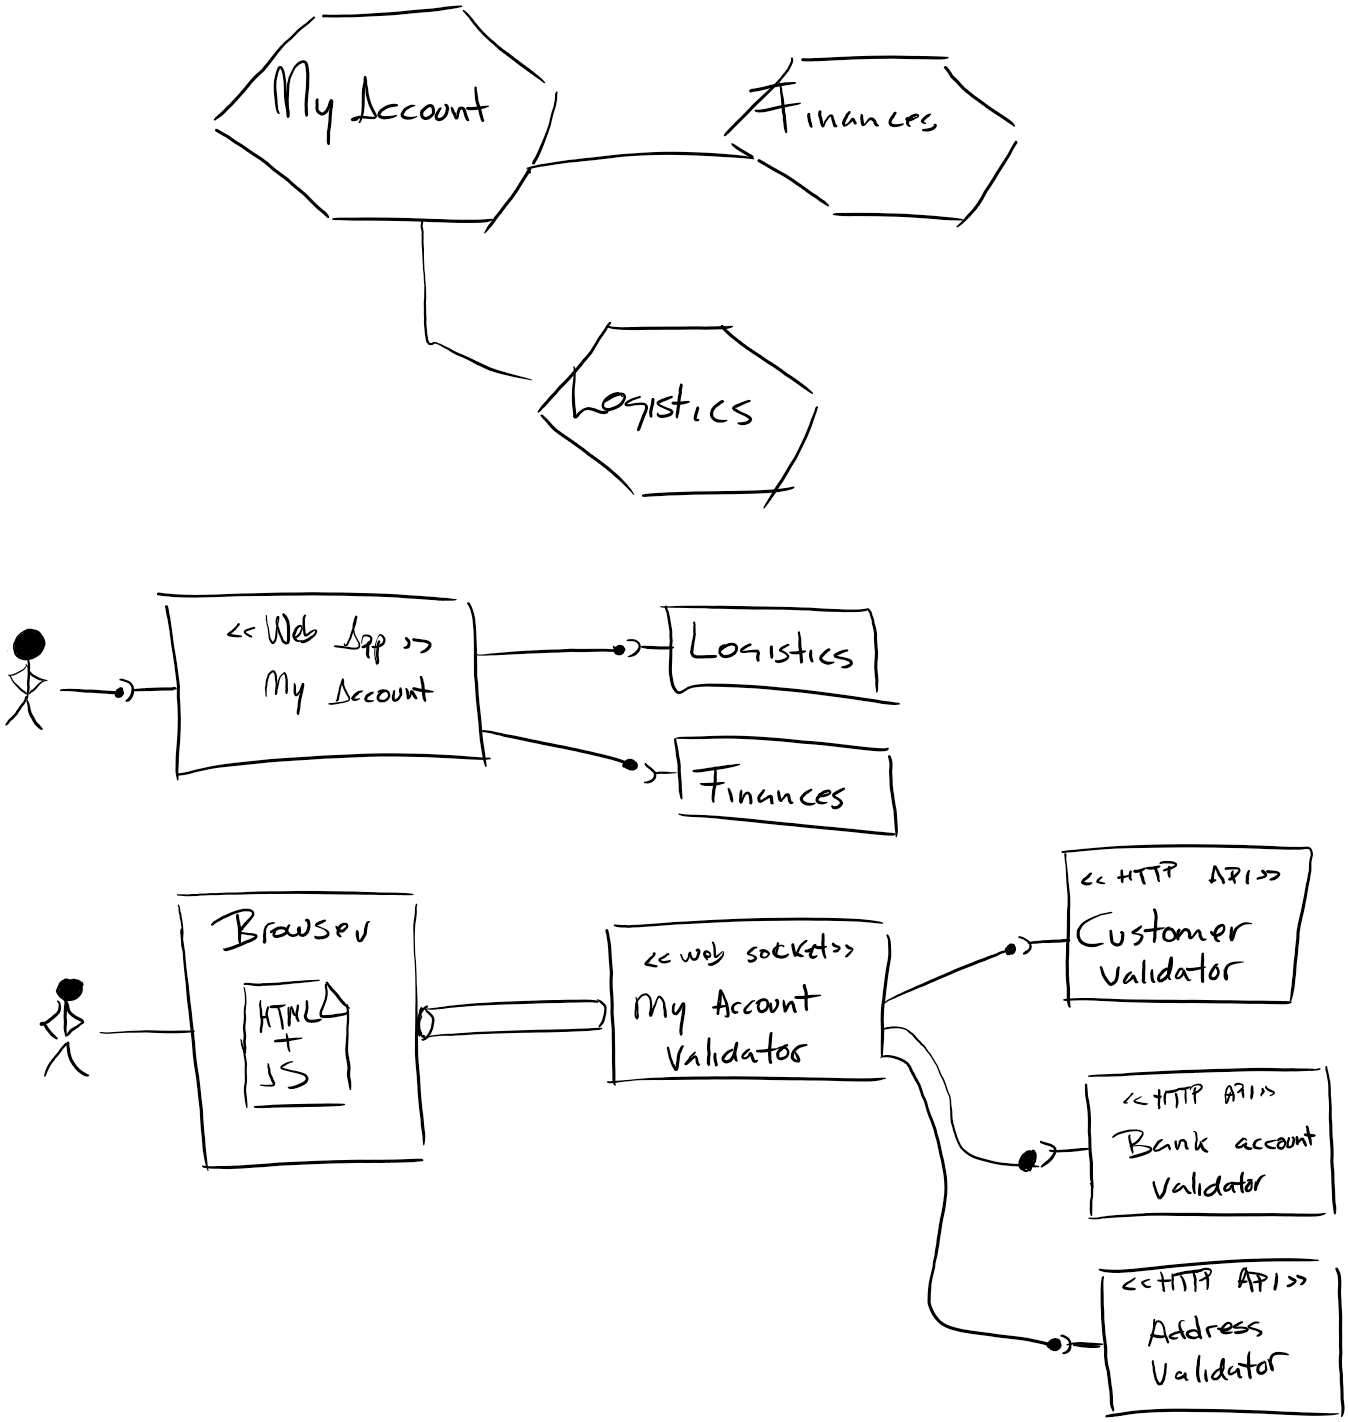 My Account
Finances
Logistics
<< Web App >>
My Account
Logistics
Finances
Browser
HTML
+
JS
<< web socket >>
My Account
Validator
<< HTTP API >>
Customer
Validator
<< HTTP API >>
Bank account
Validator
<< HTTP API >>
Address
Validator